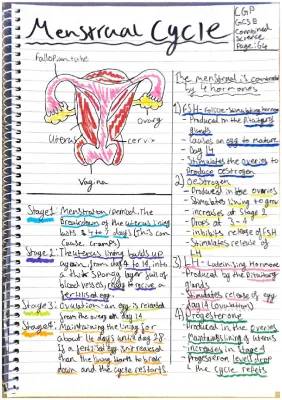 Menstrual Cycle
CGP
GCSE
Combined
Science
Page: 64
Fallopian tube
Ovary
Uterus
cervix
Vagina
The menstrual is controlled
by 4 hormones
1) FSH - Follicle-Stimulating hormone
- Produced in the Pituitary
glands
- Causes an egg to mature
- Day 14
- Stimulates the ovaries to
Produce oestrogen
2) Oestrogen
- Produced in the ovaries
- Stimulates lining to grow
- increases at Stage 2
- Drops at 3-4
- inhibits release of FSH
- Stimulates release of
LH
3) LH - Luteinising Hormone
- Produced by the Pituitary
glands
- Stimulates release of egg
day 14 (ovulation)
4) Progesterone
- Produced in the ovaries
- Maintains lining of uterus
- increases in Stage 4
- Progesteron level drop
↳ the cycle repets
Stage 1: Menstruation/period. The
Breakdown of the uterus lining
lasts 4 to 7 days (This can
cause cramps)
Stage 2: The uterus lining builds up
again, from day 4 to 14, into
a thick spongy layer full of
blood vessels ready to receive a
fertilised egg.
Stage 3: Ovulation - an egg is released
from the ovary at day 14
Stage 4: Maintaining the lining for
about 14 days until day 28.
If a fertilised egg isn't released
then the lining starts to break
down and the cycle restarts